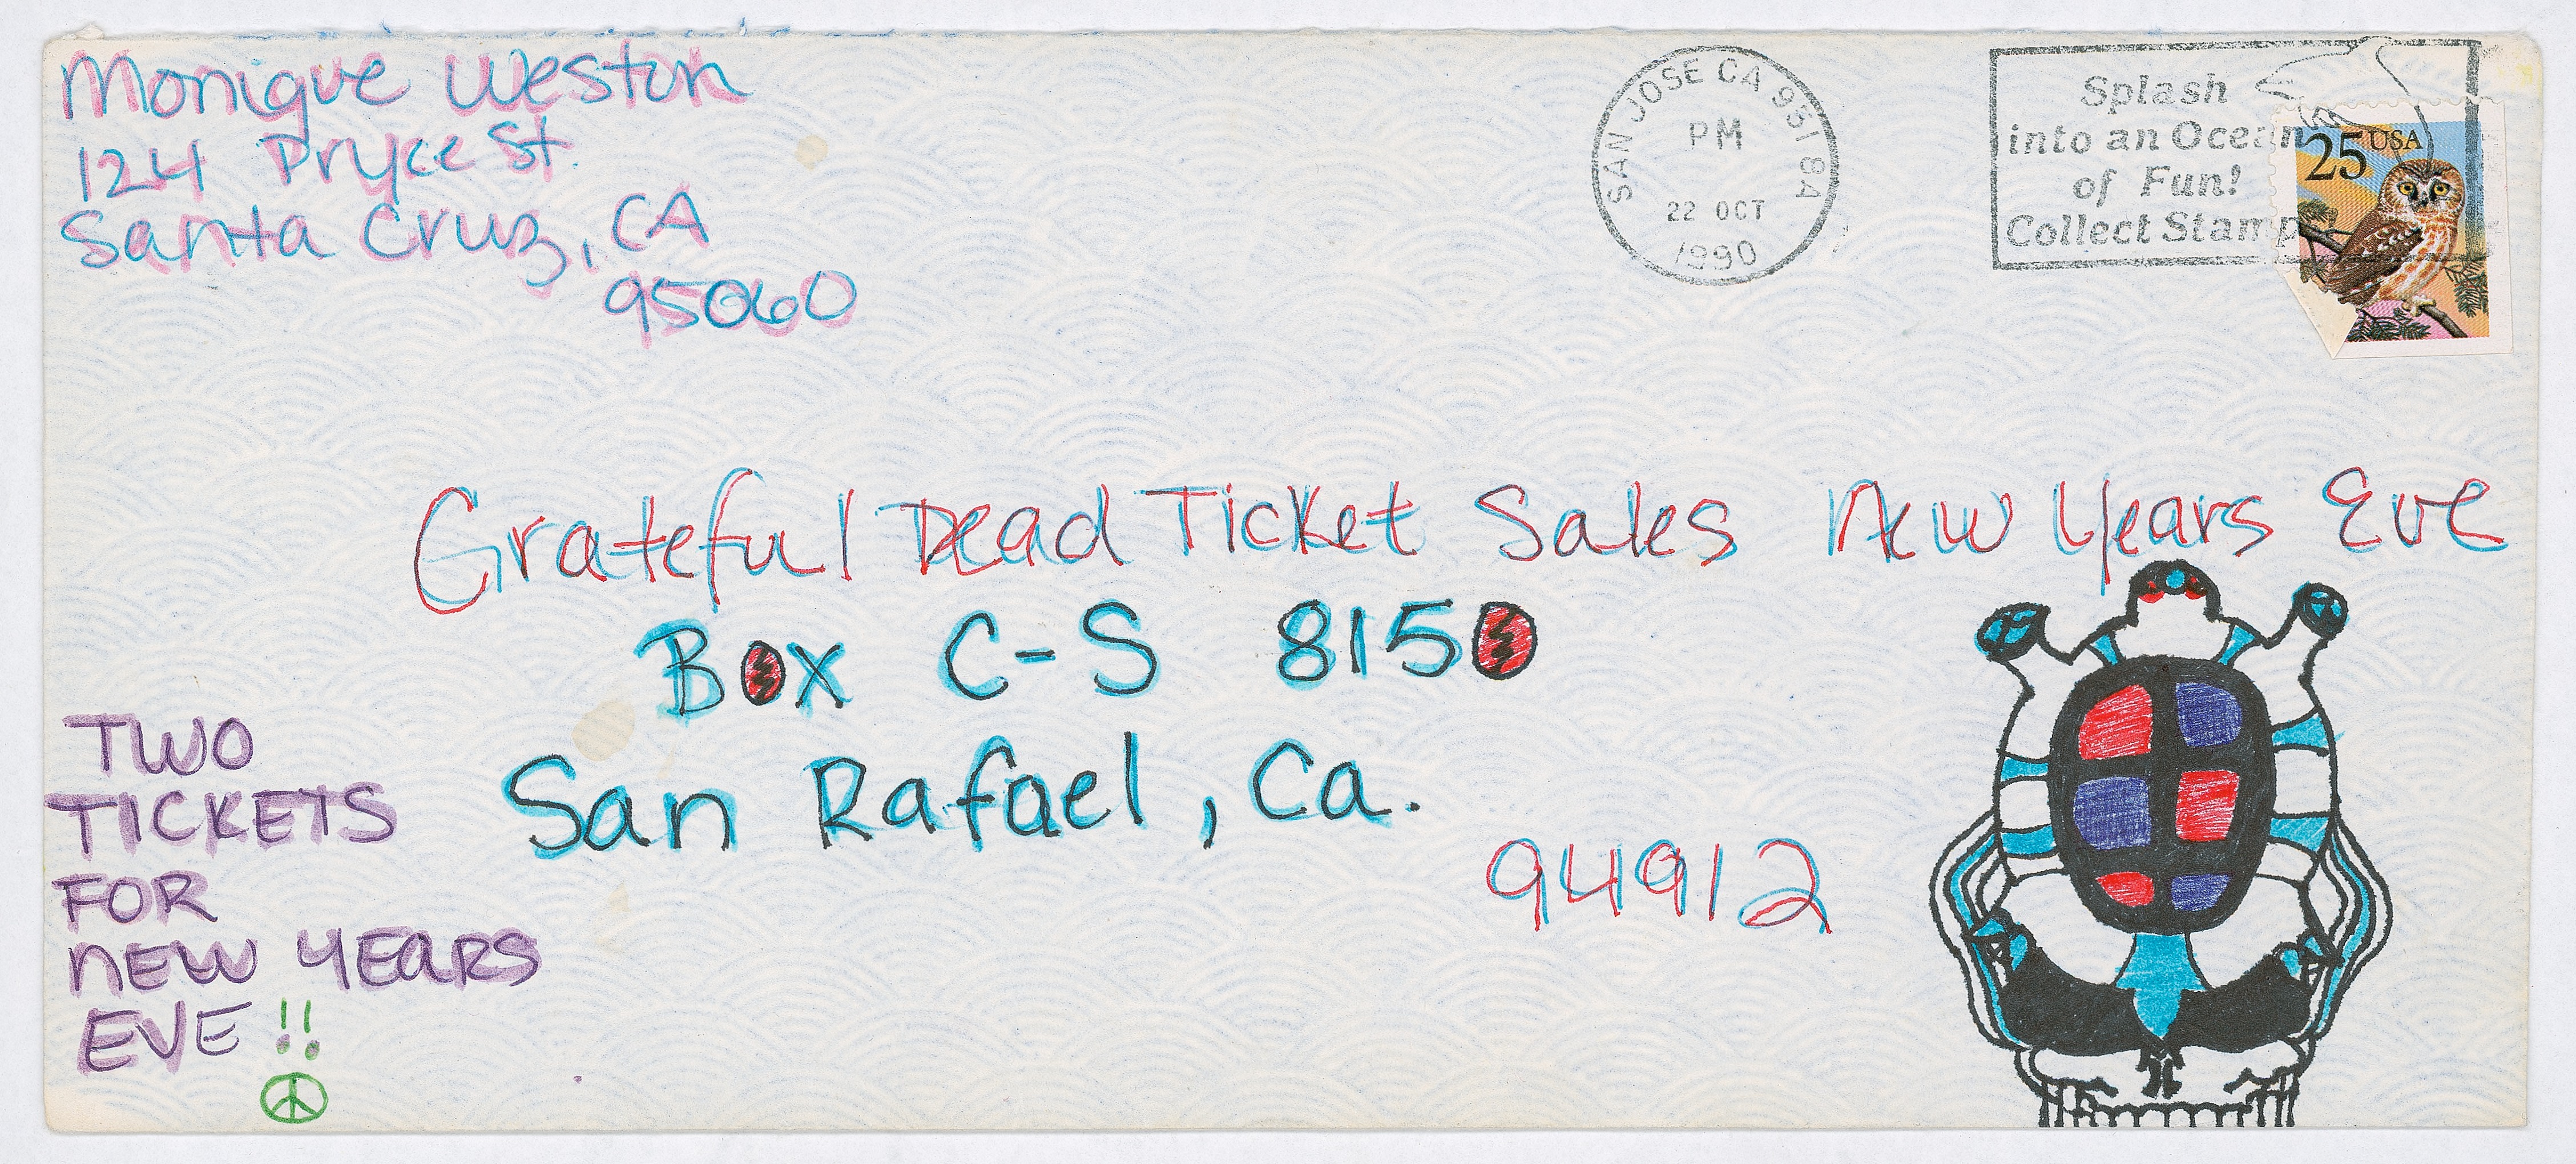 Monique Weston
124 Pryce St.
Santa Cruz, CA
95060
SAN JOSE CA 951 8A
PM
22 OCT
1990
Splash
into an Ocean
of Fun!
Collect Stamps
25 USA
Grateful Dead Ticket Sales New Years Eve
Box C-S 8150
San Rafael, Ca.
94912
TWO
TICKETS
FOR
NEW YEARS
EVE!!